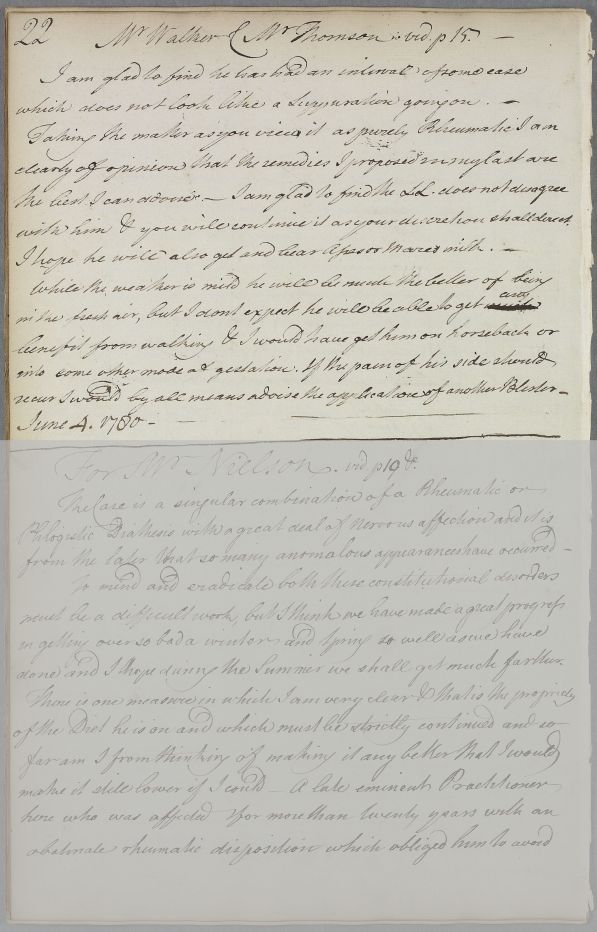 22 Mr Walker & Mr Thomson vid. p 15. —
I am glad to find he has had an interval of some ease
which does not look like a Suppuration going on. —
Taking the matter as you view it as purely Rheumatic I am
clearly of opinion that the remedies I proposed in my last are
the best I can advise. — I am glad to find the LL. does not disagree
with him & you will continue it as your discretion shall direct.
I hope he will also get and bear Apes or Mares milk. —
While the weather is mild he will be much the better of being
in the fresh air, but I dont expect he will be able to get any
benifit from walking & I would have get him on horseback or
into some other mode of gestation. If the pain of his side should
recur I would by all means advise the application of another Blister —
June 4. 1780 —
For Mr Nielson. vid. p 19 &.
The Case is a singular combination of a Rheumatic or
Phlogistic Diathesis with a great deal of Nervous affection and it is
from the later that so many anomalous appearances have occurred —
To mend and eradicate both these constitutional disorders
must be a difficult work, but I think we have made a great progress
in getting over so bad a winter and spring so well as we have
done and I hope during the Summer we shall get much farther.
There is one measure in which I am very clear & that is the propriety
of the Diet he is on and which must be strictly continued and so
far am I from thinking of making it any better that I would
make it still lower if I could — A late eminent Practitioner
here who was affected for more than twenty years with an
obstinate rheumatic disposition which obliged him to avoid